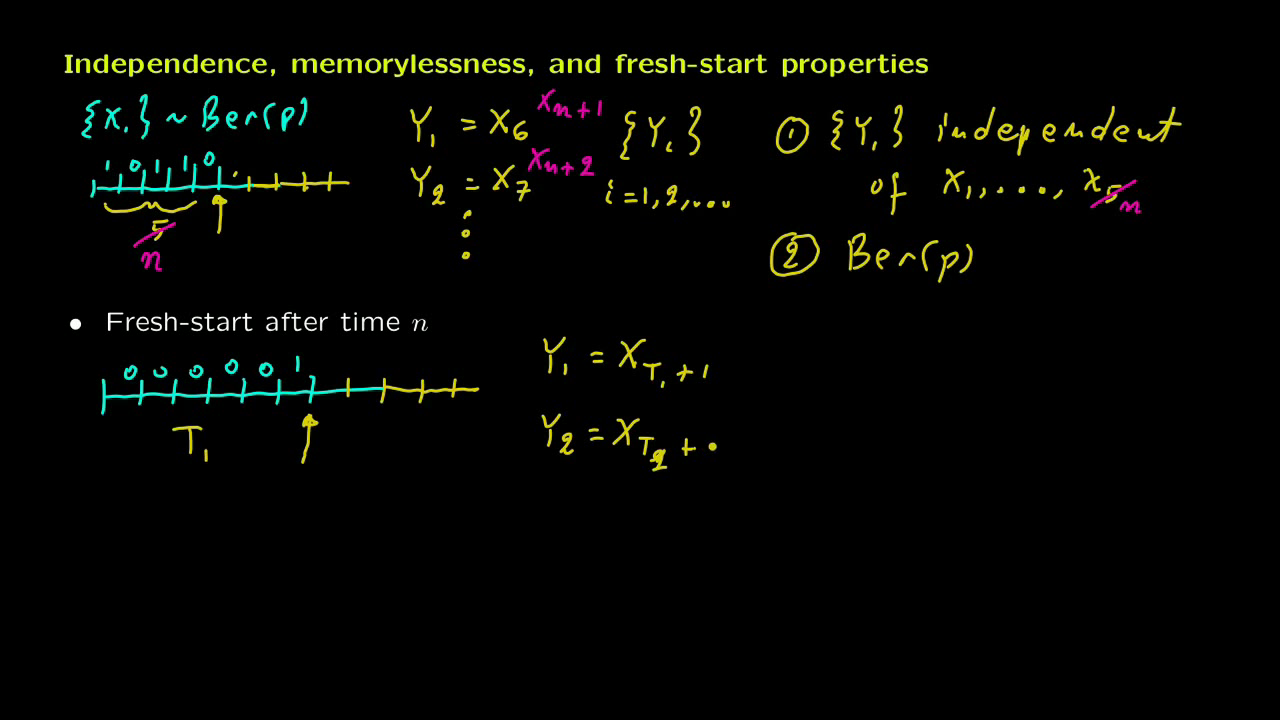 Independence, memorylessness, and fresh-start properties
{X_i} ~ Ber(p)
1 0 1 1 0
5 n
Y_1 = X_6 X_{n+1}
Y_2 = X_7 X_{n+2}
{Y_i}
i = 1, 2, ...
① {Y_i} independent
of X_1, ..., X_5 n
② Ber(p)
• Fresh-start after time n
0 0 0 0 0 1
T_1
Y_1 = X_{T_1 + 1}
Y_2 = X_{T_2 + .}